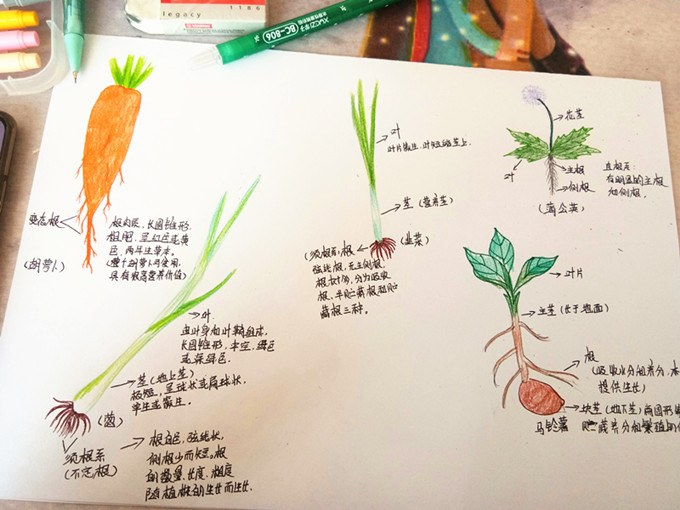 legacy 1186
BC-806
变态根
(胡萝卜)
根肉质,长圆锥形
粗肥,呈红色或黄
色,两年生草本。
具有很高营养价值)
叶
由叶身和叶鞘组成,
长圆锥形,中空,绿色
或深绿色。
茎(地上茎)
极短,呈球状或扁球状,
单生或簇生。
(葱)
须根系
(不定根)
根白色,弦线状,
侧根少而短。根
的数量、长度、粗度
随植株的生长而生长.
叶
叶片簇生,叶短缩茎上.
茎(营养茎)
(韭菜)
(须根系)根
弦线根,无主侧根,
根、半贮藏根和贮
藏根三种。
花茎
叶
主根
侧根
直根系:
有明显的主根
和侧根.
(蒲公英)
叶片
主茎(长于地面)
根
(吸收水分和养分,
提供生长)
块茎(地下茎)
马铃薯